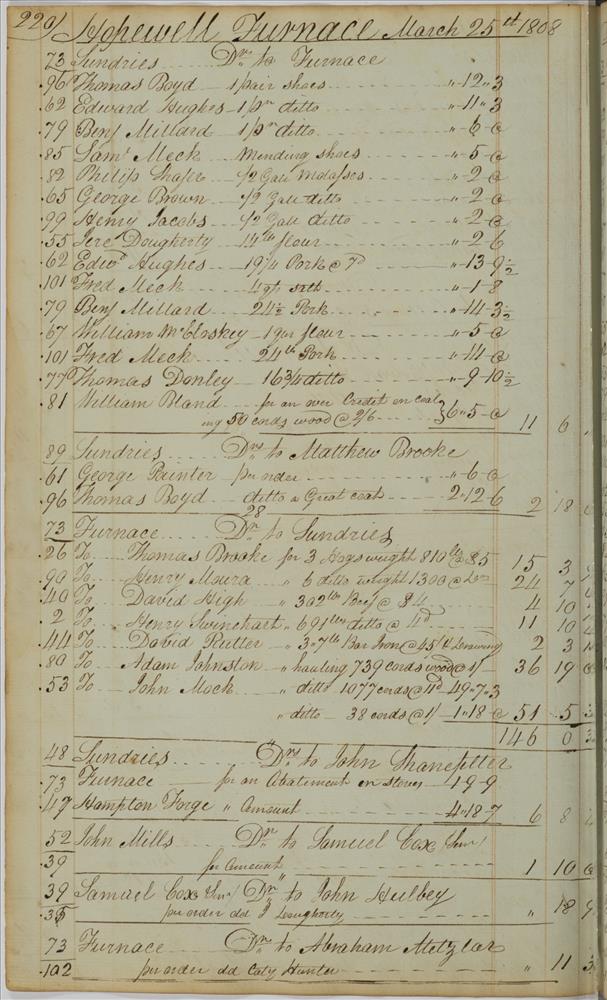 220/ Hopewell Furnace March 25th 1808
73 Sundries Drs to Furnace
96 Thomas Boyd 1 pair shoes " 12 " 3
62 Edward Hughes 1 pr ditto " 11 " 3
79 Benj Millard 1 pr ditto " 6 - 0
85 Saml Meck Mending shoes " 5 - 0
82 Philip Shafer 1/2 Gall Molasses " 2 - 0
65 George Brown 1/2 Gall ditto " 2 - 0
99 Henry Jacobs 1/2 Gall ditto " 2 - 0
55 Jere Dougherty 14 lb flour " 2 - 6
62 Edwd Hughes 19 1/4 Pork @ 7d " 13 - 9 1/2
101 Fred Meck 4 qt salt " 1 - 8
79 Benj Millard 24 1/2 Pork " 14 - 3 1/2
67 William McElrskey 1 qur flour " 5 - 0
101 Fred Meck 24 lb Pork " 14 - 0
77 Thomas Donley 16 3/4 ditto " 9 - 10 1/2
81 William Bland for an over Credit on coal
ing 50 cords wood @ 2/6 } 6 " 5 - 0 11 6
89 Sundries Drs to Matthew Brooke
61 George Painter per order " 6 - 0
96 Thomas Boyd ditto a Great coat 2 " 12 - 6 2 18
28
73 Furnace Dr to Sundries
26 To Thomas Brooke for 3 Hogs weight 810 lb @ $5 15 3 9
90 To Henry Moura " 6 ditto weight 1300 @ 24 7
40 To David High " 302 lbs Beef @ $4 4 10
2 To Henry Swinehart " 691 lbs ditto @ 4d 11 10
44 To David Rutter " Bar Iron @ 45/ & Drawing 2 3
80 To Adam Johnston " hauling 739 cords wood @ 1/ 36 19 0
53 To John Mock " ditto 1077 cords @ 11d 49 " 7 " 3
" ditto 38 cords @ 1/ 1 " 18 - 0 51 5 3
146 0 3
48 Sundries Drs to John Shanefelter
73 Furnace for an Abatement on stoves 1 9 - 9
47 Hampton Forge " Amount 4 " 18 " 7 6 8
52 John Mills Dr to Samuel Cox Senr/
39 for Amount 1 10 0
39 Samuel Cox Senr/ Dr to John Hulbey
35 per order dd J Dougherty " 18 9
73 Furnace Dr to Abraham Metzlar
102 per order dd Caty Hunter " 11 3